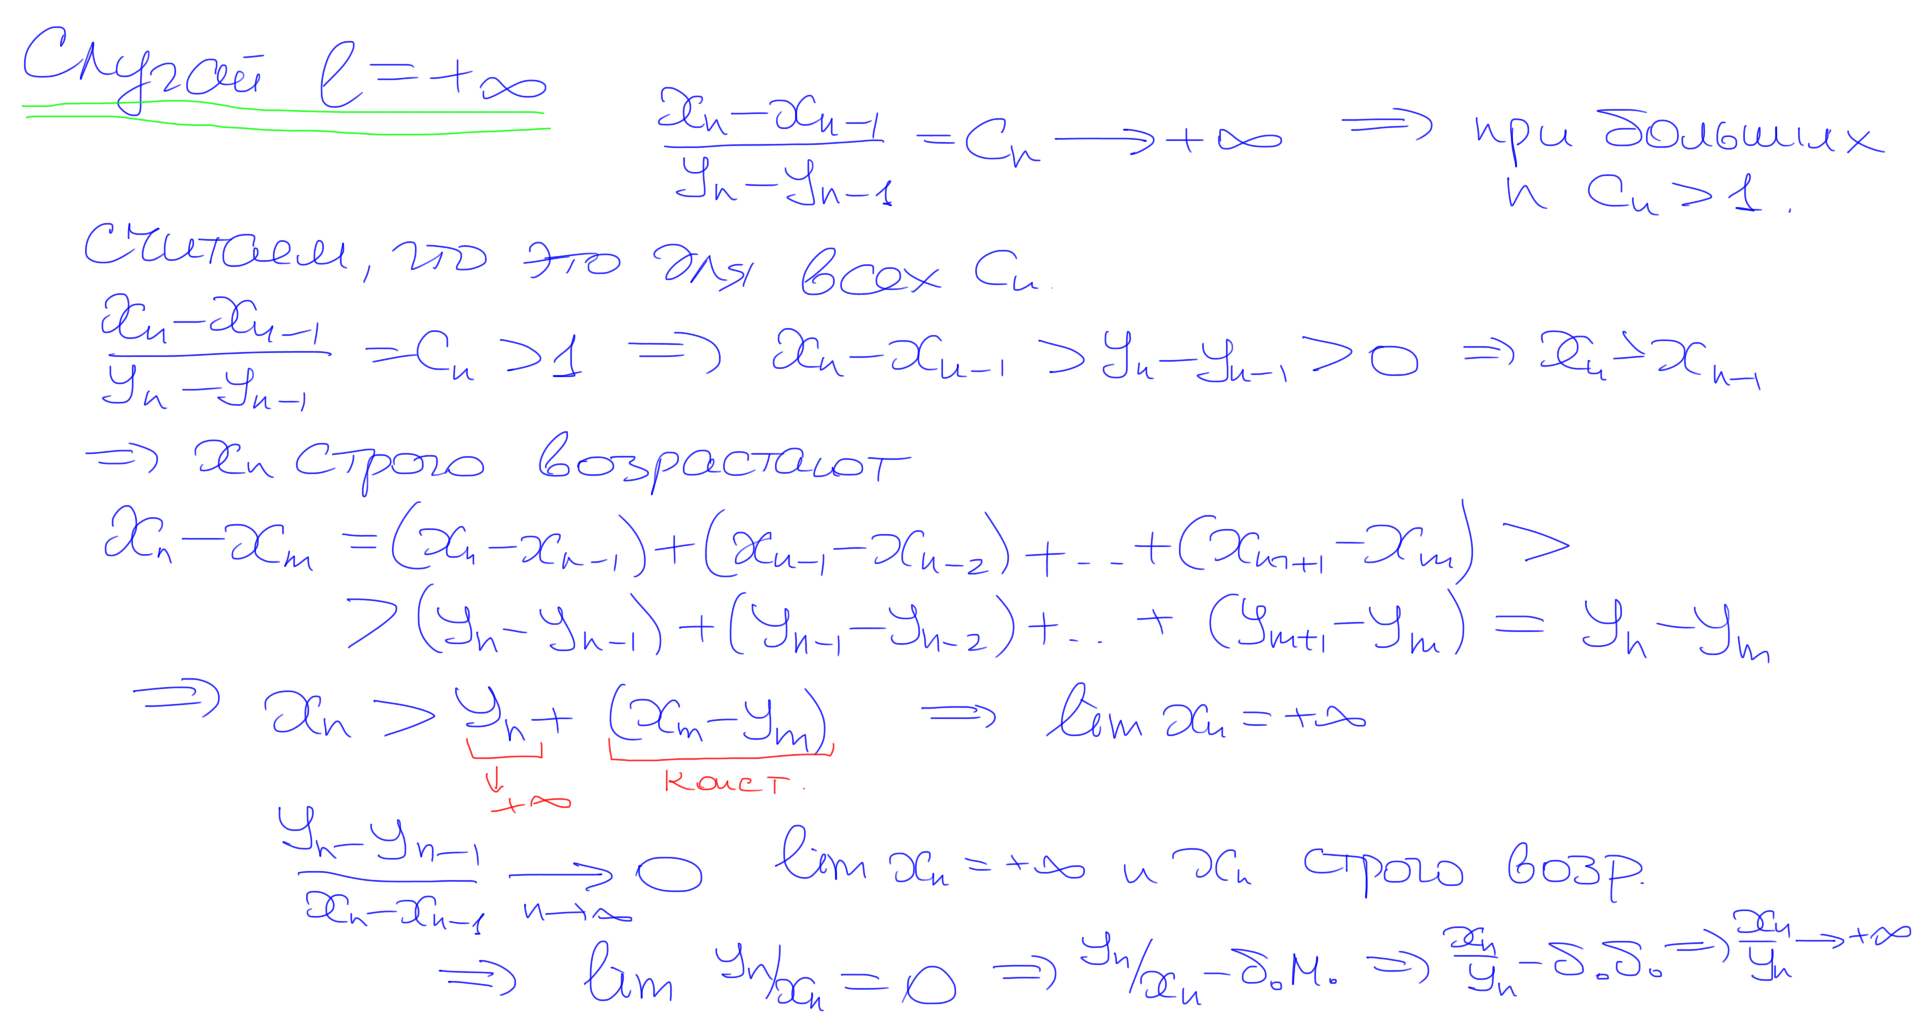 Случай l = +∞
(xₙ − xₙ₋₁)/(yₙ − yₙ₋₁) = Cₙ ⟶ +∞ ⟹ при больших
n Cₙ > 1.
Считаем, что это для всех Cₙ.
(xₙ − xₙ₋₁)/(yₙ − yₙ₋₁) = Cₙ > 1 ⟹ xₙ − xₙ₋₁ > yₙ − yₙ₋₁ > 0 ⟹ xₙ > xₙ₋₁
⟹ xₙ строго возрастают
xₙ − xₘ = (xₙ − xₙ₋₁) + (xₙ₋₁ − xₙ₋₂) + ... + (xₘ₊₁ − xₘ) >
> (yₙ − yₙ₋₁) + (yₙ₋₁ − yₙ₋₂) + ... + (yₘ₊₁ − yₘ) = yₙ − yₘ
⟹ xₙ > yₙ + (xₘ − yₘ) ⟹ lim xₙ = +∞
↓ конст.
+∞
(yₙ − yₙ₋₁)/(xₙ − xₙ₋₁) ⟶ 0 lim xₙ = +∞ и xₙ строго возр.
n→∞
⟹ lim yₙ/xₙ = 0 ⟹ yₙ/xₙ − б.м. ⟹ xₙ/yₙ − б.б. ⟹ xₙ/yₙ ⟶ +∞